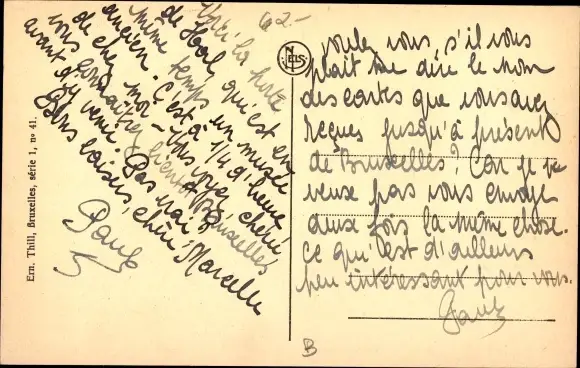 62-
Voici la porte
de Hal, qui est en
même temps un musée
ancien. C'est à 1/4 d'heure
de chez moi - vous voyez chérie
vous connaîtrez bientôt Bruxelles
avant d'y venir. Pas vrai?
Bons baisers, chère Marcelle
Paul
Ern. Thill, Bruxelles, série 1, nº 41.
NELS
voulez vous, s'il vous
plait me dire le nom
des cartes que vous avez
reçues jusqu'à présent
de Bruxelles? Car je ne
veux pas vous envoyer
deux fois la même chose.
ce qui est d'ailleurs
peu intéressant pour vous.
Paul
B